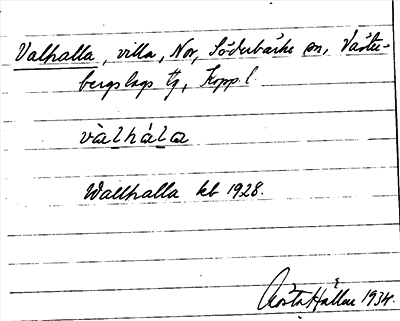 Valhalla, villa, Nor, Söderbärke sn, Väster-
bergslags tg, Kopp. l.
vàlhála
Wallhalla kb 1928.
Gösta Hallin 1934.